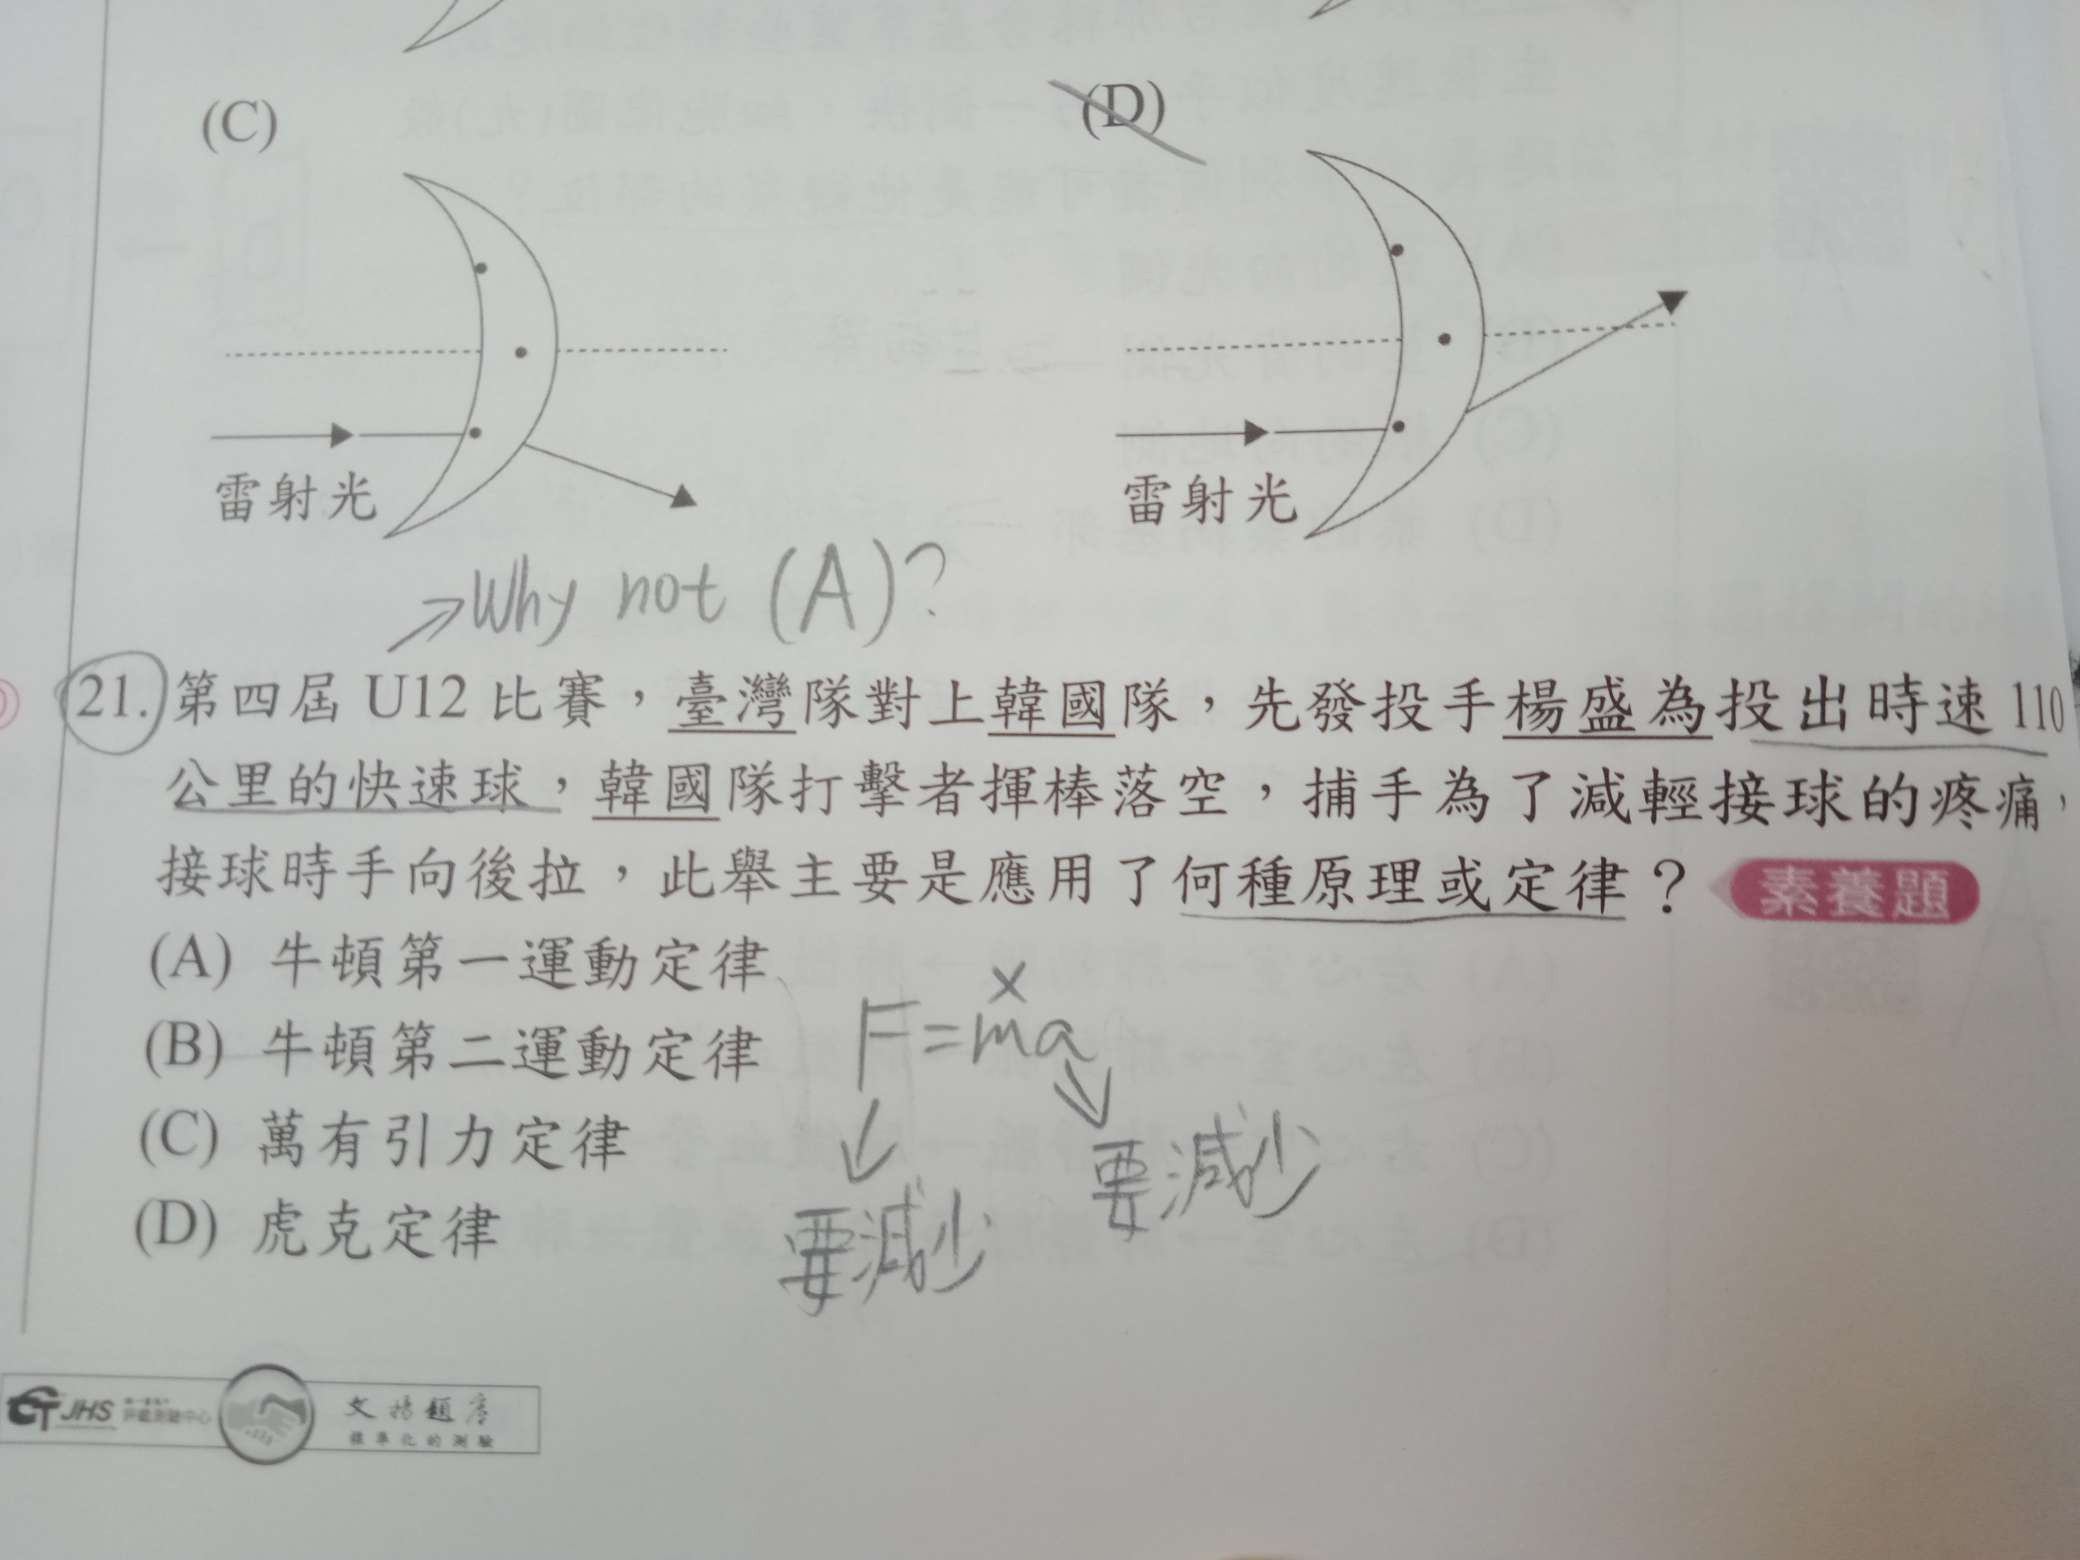 (C)
(D)
雷射光
雷射光
Why not (A)?
21. 第四屆 U12 比賽，臺灣隊對上韓國隊，先發投手楊盛為投出時速 110
公里的快速球，韓國隊打擊者揮棒落空，捕手為了減輕接球的疼痛，
接球時手向後拉，此舉主要是應用了何種原理或定律？ 素養題
(A) 牛頓第一運動定律
(B) 牛頓第二運動定律
(C) 萬有引力定律
(D) 虎克定律
x
F=ma
要減少
要減少
JHS
標準化的測驗